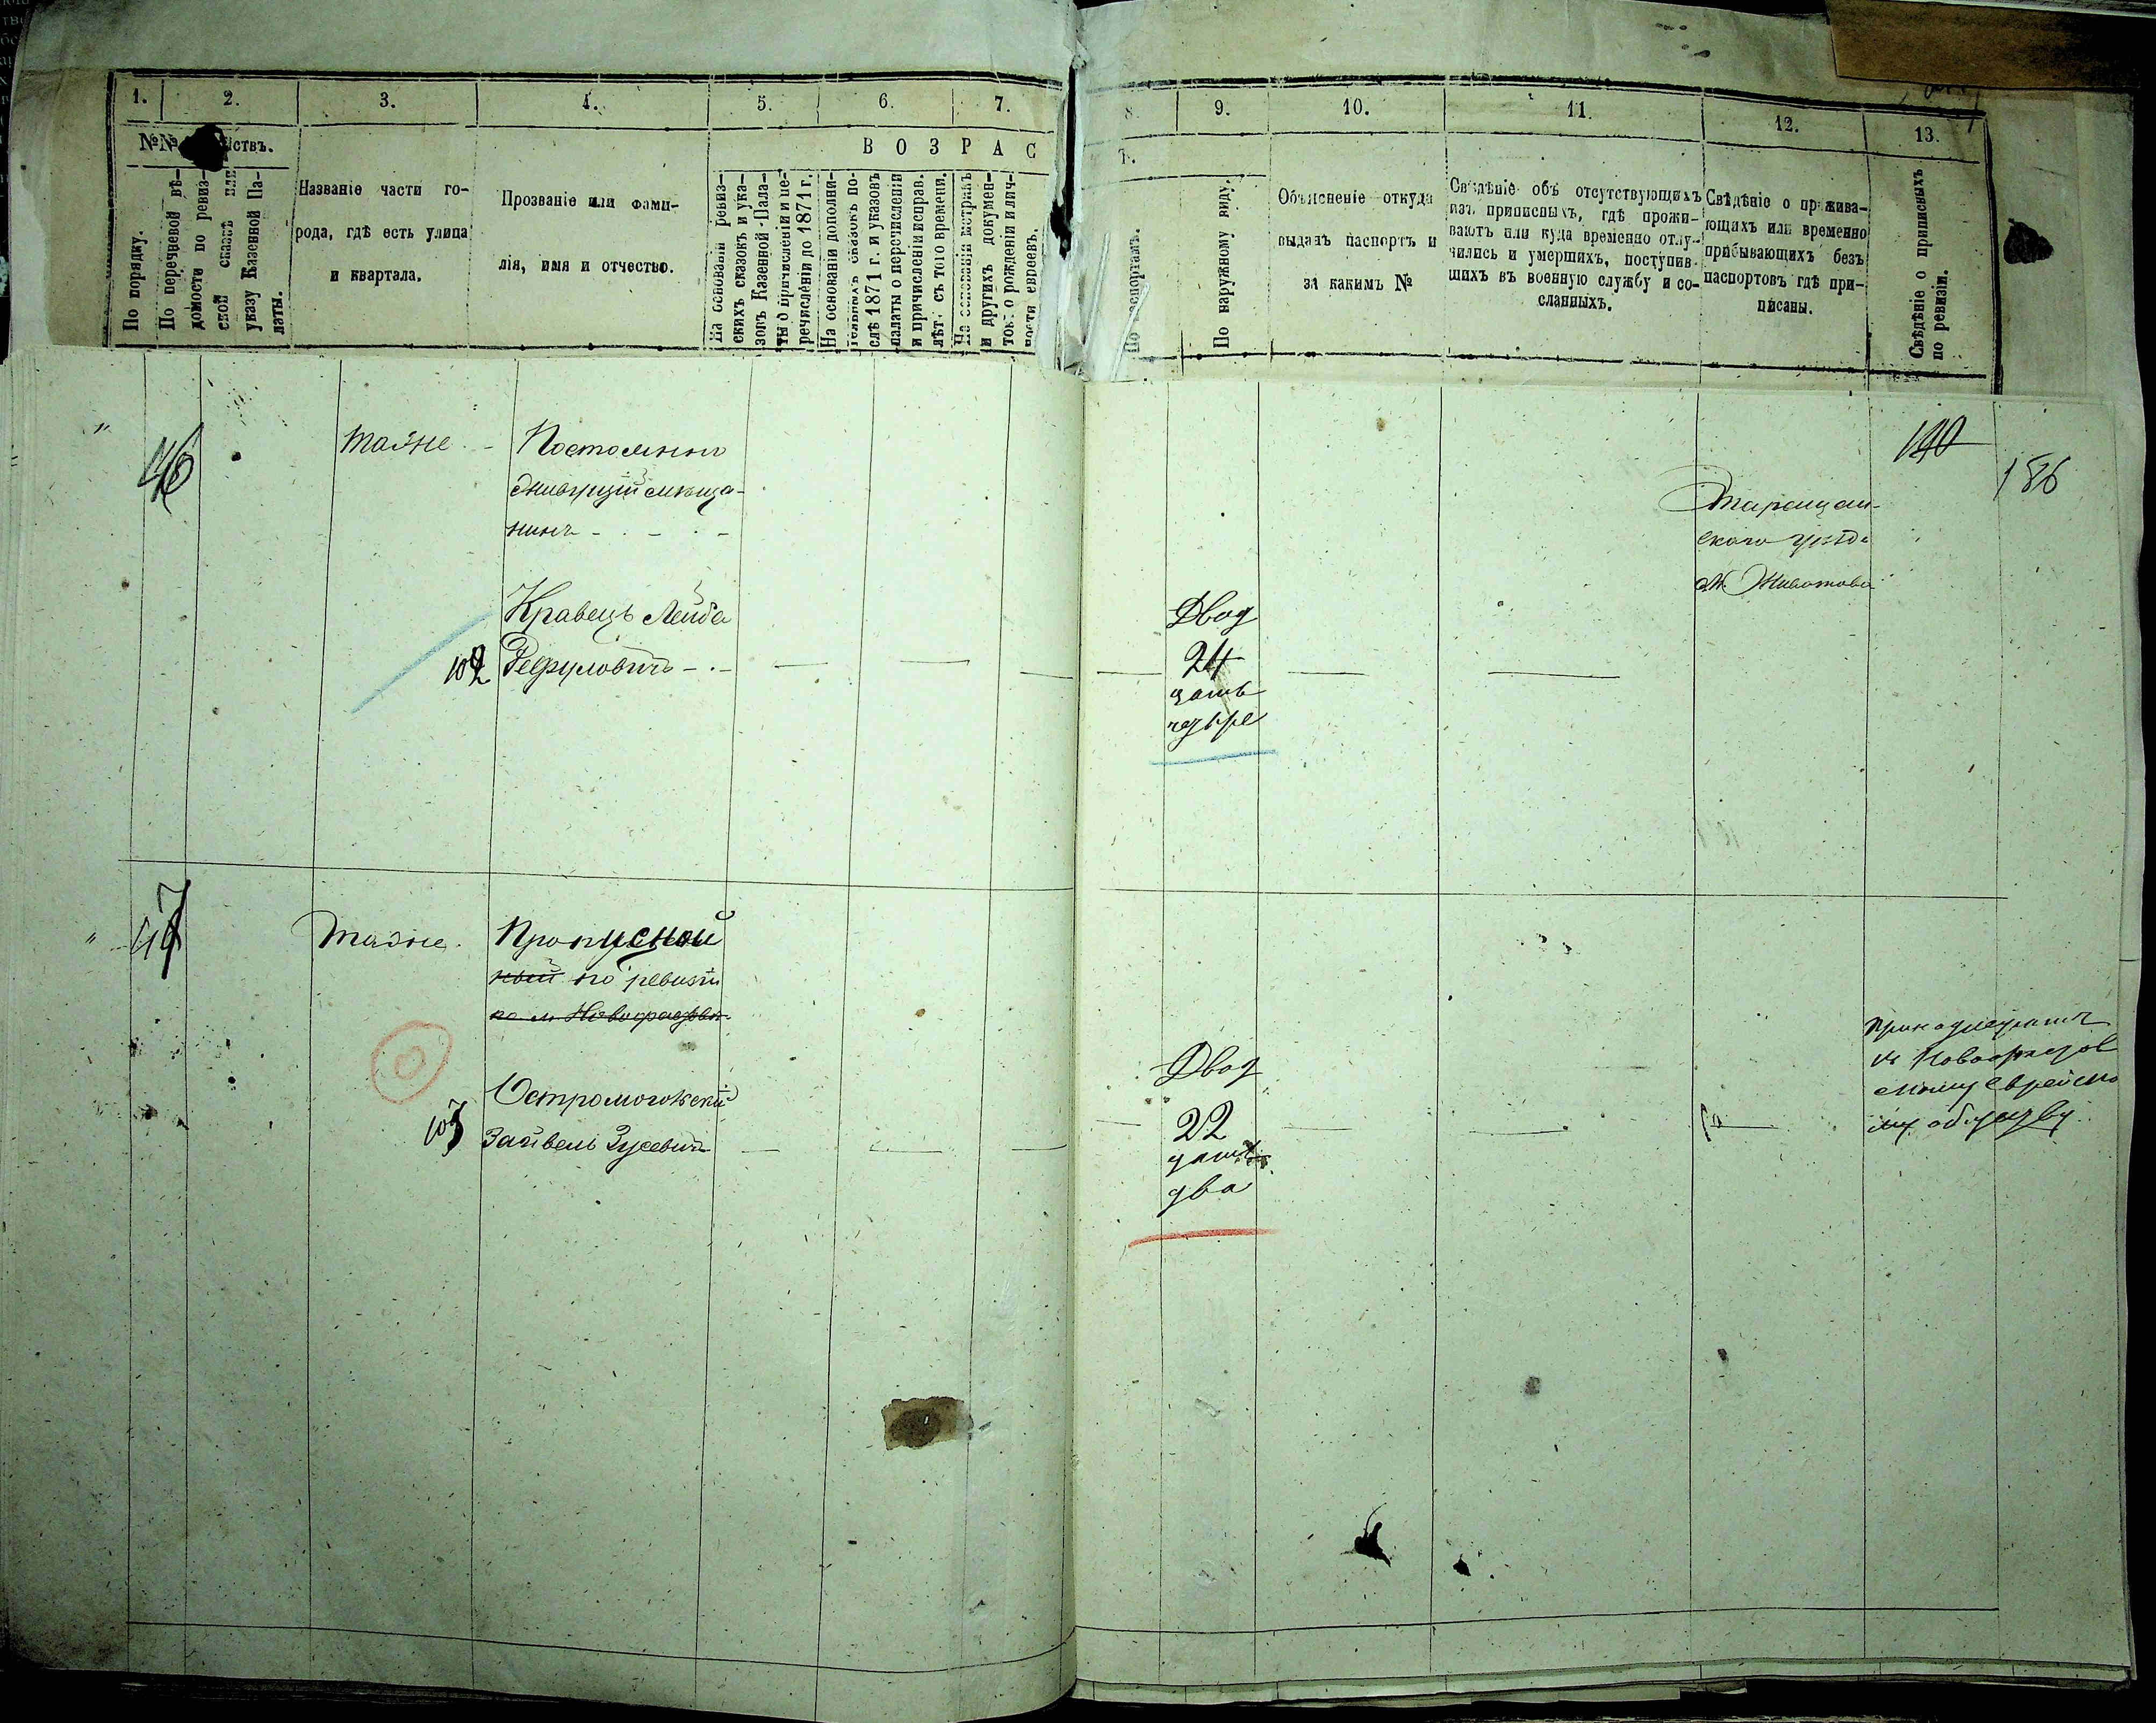 1. 2. 3. 4. 5. 6. 7.
№№ йствъ.
По порядку.
По перечневой вѣ-
домости по ревиз-
ской сказкѣ или
указу Казенной Па-
латы.
Названіе части го-
рода, гдѣ есть улица
и квартала.
Прозваніе или фами-
лія, имя и отчество.
В О З Р А С
На основаніи ревиз-
скихъ сказокъ и ука-
зовъ Казенной Пала-
ты о причисленіи и пе-
речисленіи до 1871 г.
На основаніи дополни-
тельныхъ сказокъ по-
слѣ 1871 г. и указовъ
палаты о перечисленіи
и причисленіи исправ.
лѣт. съ того времени.
На основаніи метрикъ
и других докумен-
тов: о рожденіи и лич-
ности евреевъ.
8. 9. 10. 11. 12. 13.
Т.
По паспортамъ.
По наружному виду.
Объясненіе откуда
выданъ паспортъ и
за какимъ №
Свѣдѣніе объ отсутствующихъ
изъ приписныхъ, гдѣ прожи-
ваютъ или куда временно отлу-
чились и умершихъ, поступив-
шихъ въ военную службу и со-
сланныхъ.
Свѣдѣніе о прожива-
ющихъ или временно
прибывающихъ безъ
паспортовъ гдѣ при-
писаны.
Свѣдѣніе о приписныхъ
по ревизіи.
" 46 тоже - Постоянно
живущій мѣща-
нинъ - - -
Кравецъ Лейба
102
24
Двад
цать
четыре
Таращан-
скаго уѣзда
м Животова
140
186
" 47 тоже. Пропускной
ный по ревизіи
по м Новофастов
Остромогожскій
103 Зайвель Зусевичъ
Двад
22
цать
два
принадлежитъ
къ Новофастов
скому еврейско
му обществу